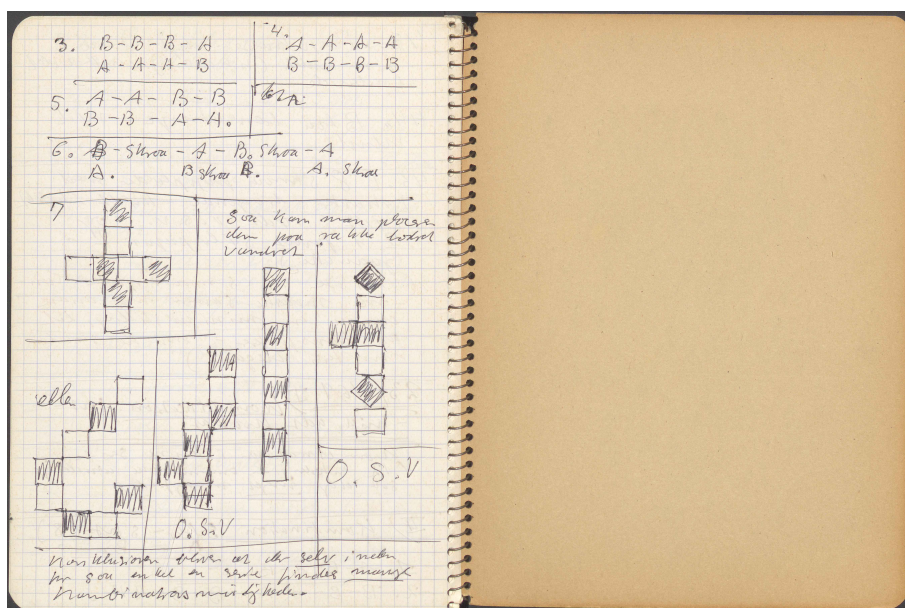 3. B-B-B-A
A-A-A-B
4. A-A-A-A
B-B-B-B
5. A-A-B-B
B-B-A-A.
6. B-skraa-A-B. skraa-A
A. B skraa B. A. skraa
7
Saa kan man prøve
dem paa række lodret
vandret
eller
O.S.V
O.S.V
Konklusionen bliver at der selv inden
for saa enkel en serie findes mange
Kombinationsmuligheder.